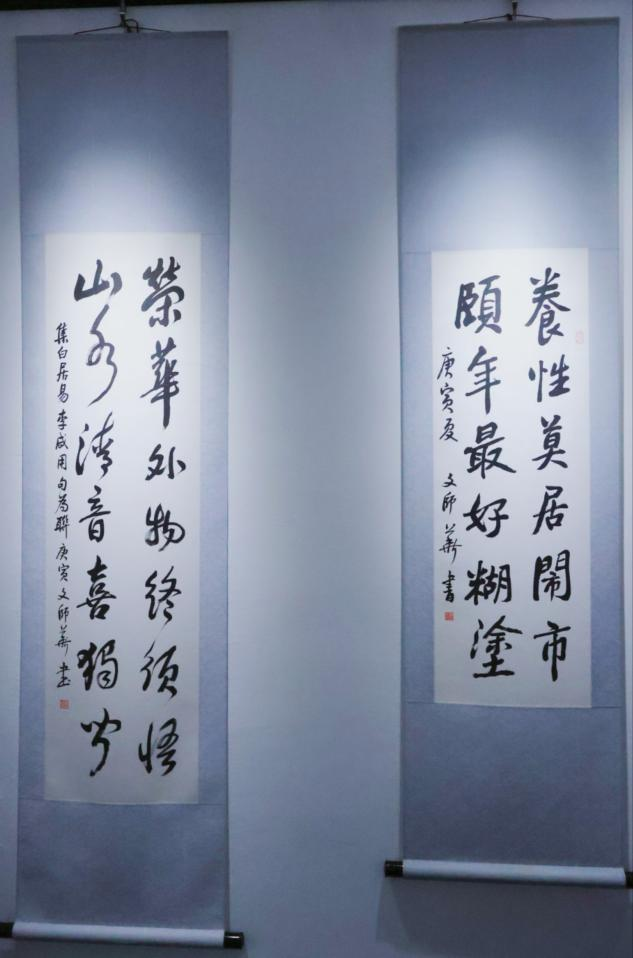 養性莫居鬧市
頤年最好糊塗
庚寅夏 文師華書
榮華外物終須悟
山水清音喜獨聞
集白居易李咸用句為聯 庚寅文師華書